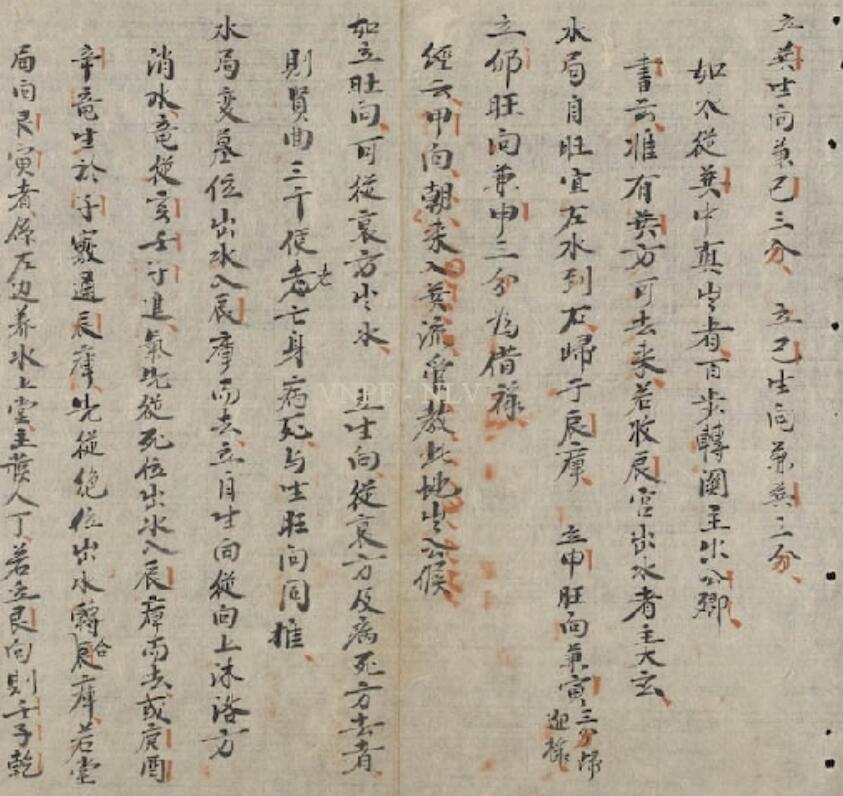 立巽生向兼巳三分 立巳生向兼巽三分
如水從巽中真出者百步轉闌主出公卿
書云惟有巽方可去来若收辰宮出水者主大玄
水局自旺宜左水到右歸于辰庫 立甲旺向兼寅三分帰迎祿
立卯旺向兼甲三分為借祿
經云甲向朝来入巽流管教此地出公侯
如立旺向可從衰方出水 立生向從衰方及病死方去者
則賢曲三千便老亡身病死与生旺向同推
水局变墓位出水入辰庫而去立自生向從向上沐浴方
消水竜從亥壬子進氣先從死位出水入辰庫而去或庚酉
辛竜生於子竅通辰庫先從絶位出水轉合辰庫若堂
局向艮寅者係左边养水上堂主發人丁若立艮向則壬子乾
VNPF - NLV